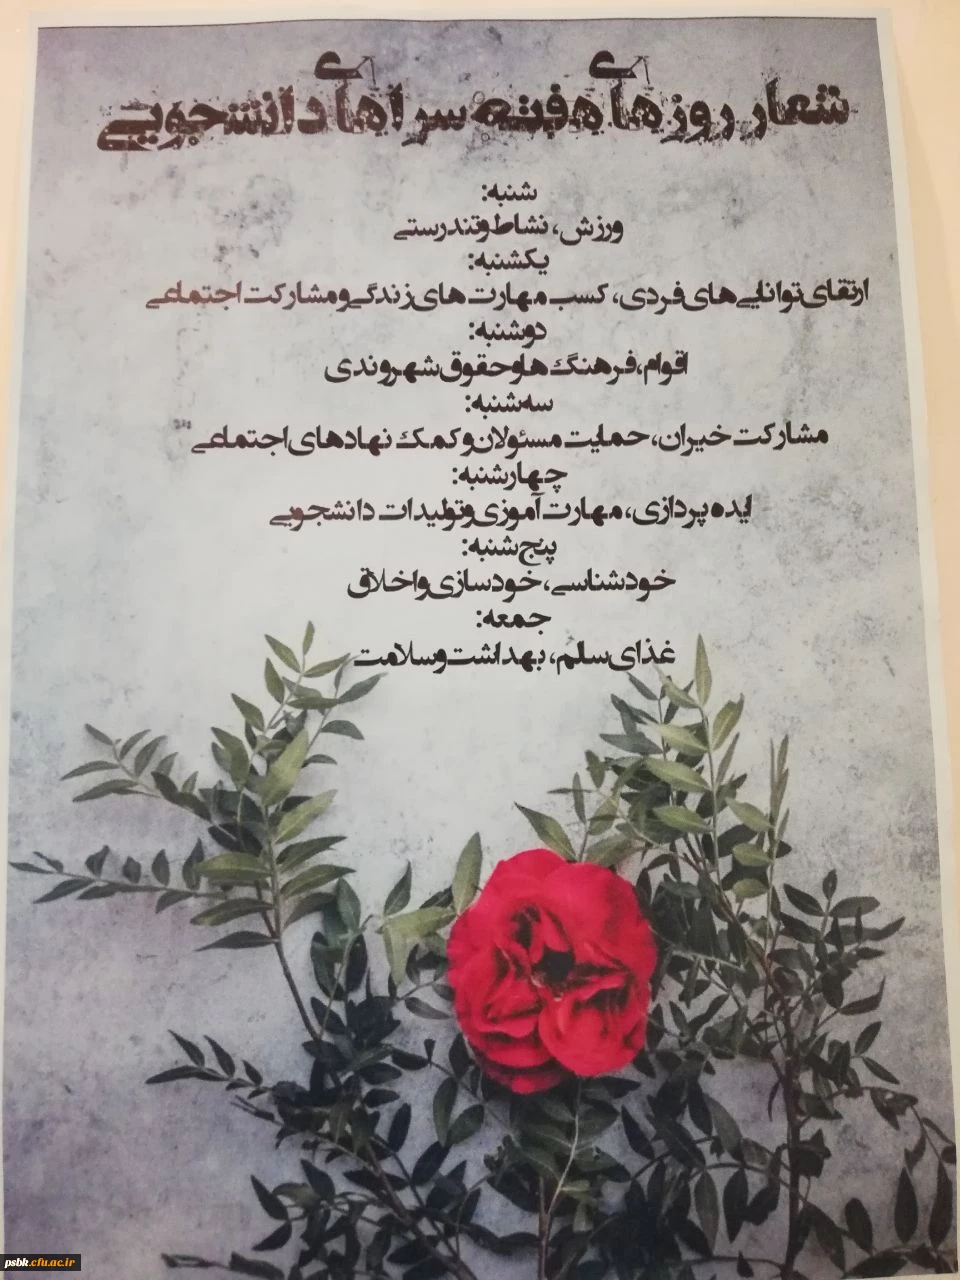 شعار روزهای هفته سراهای دانشجویی
شنبه:
ورزش، نشاط و تندرستی
یکشنبه:
ارتقای توانایی های فردی، کسب مهارت های زندگی و مشارکت اجتماعی
دوشنبه:
اقوام، فرهنگ ها و حقوق شهروندی
سه شنبه:
مشارکت خیران، حمایت مسئولان و کمک نهادهای اجتماعی
چهارشنبه:
ایده پردازی، مهارت آموزی و تولیدات دانشجویی
پنج شنبه:
خودشناسی، خودسازی و اخلاق
جمعه:
غذای سالم، بهداشت و سلامت
psbk.cfu.ac.ir